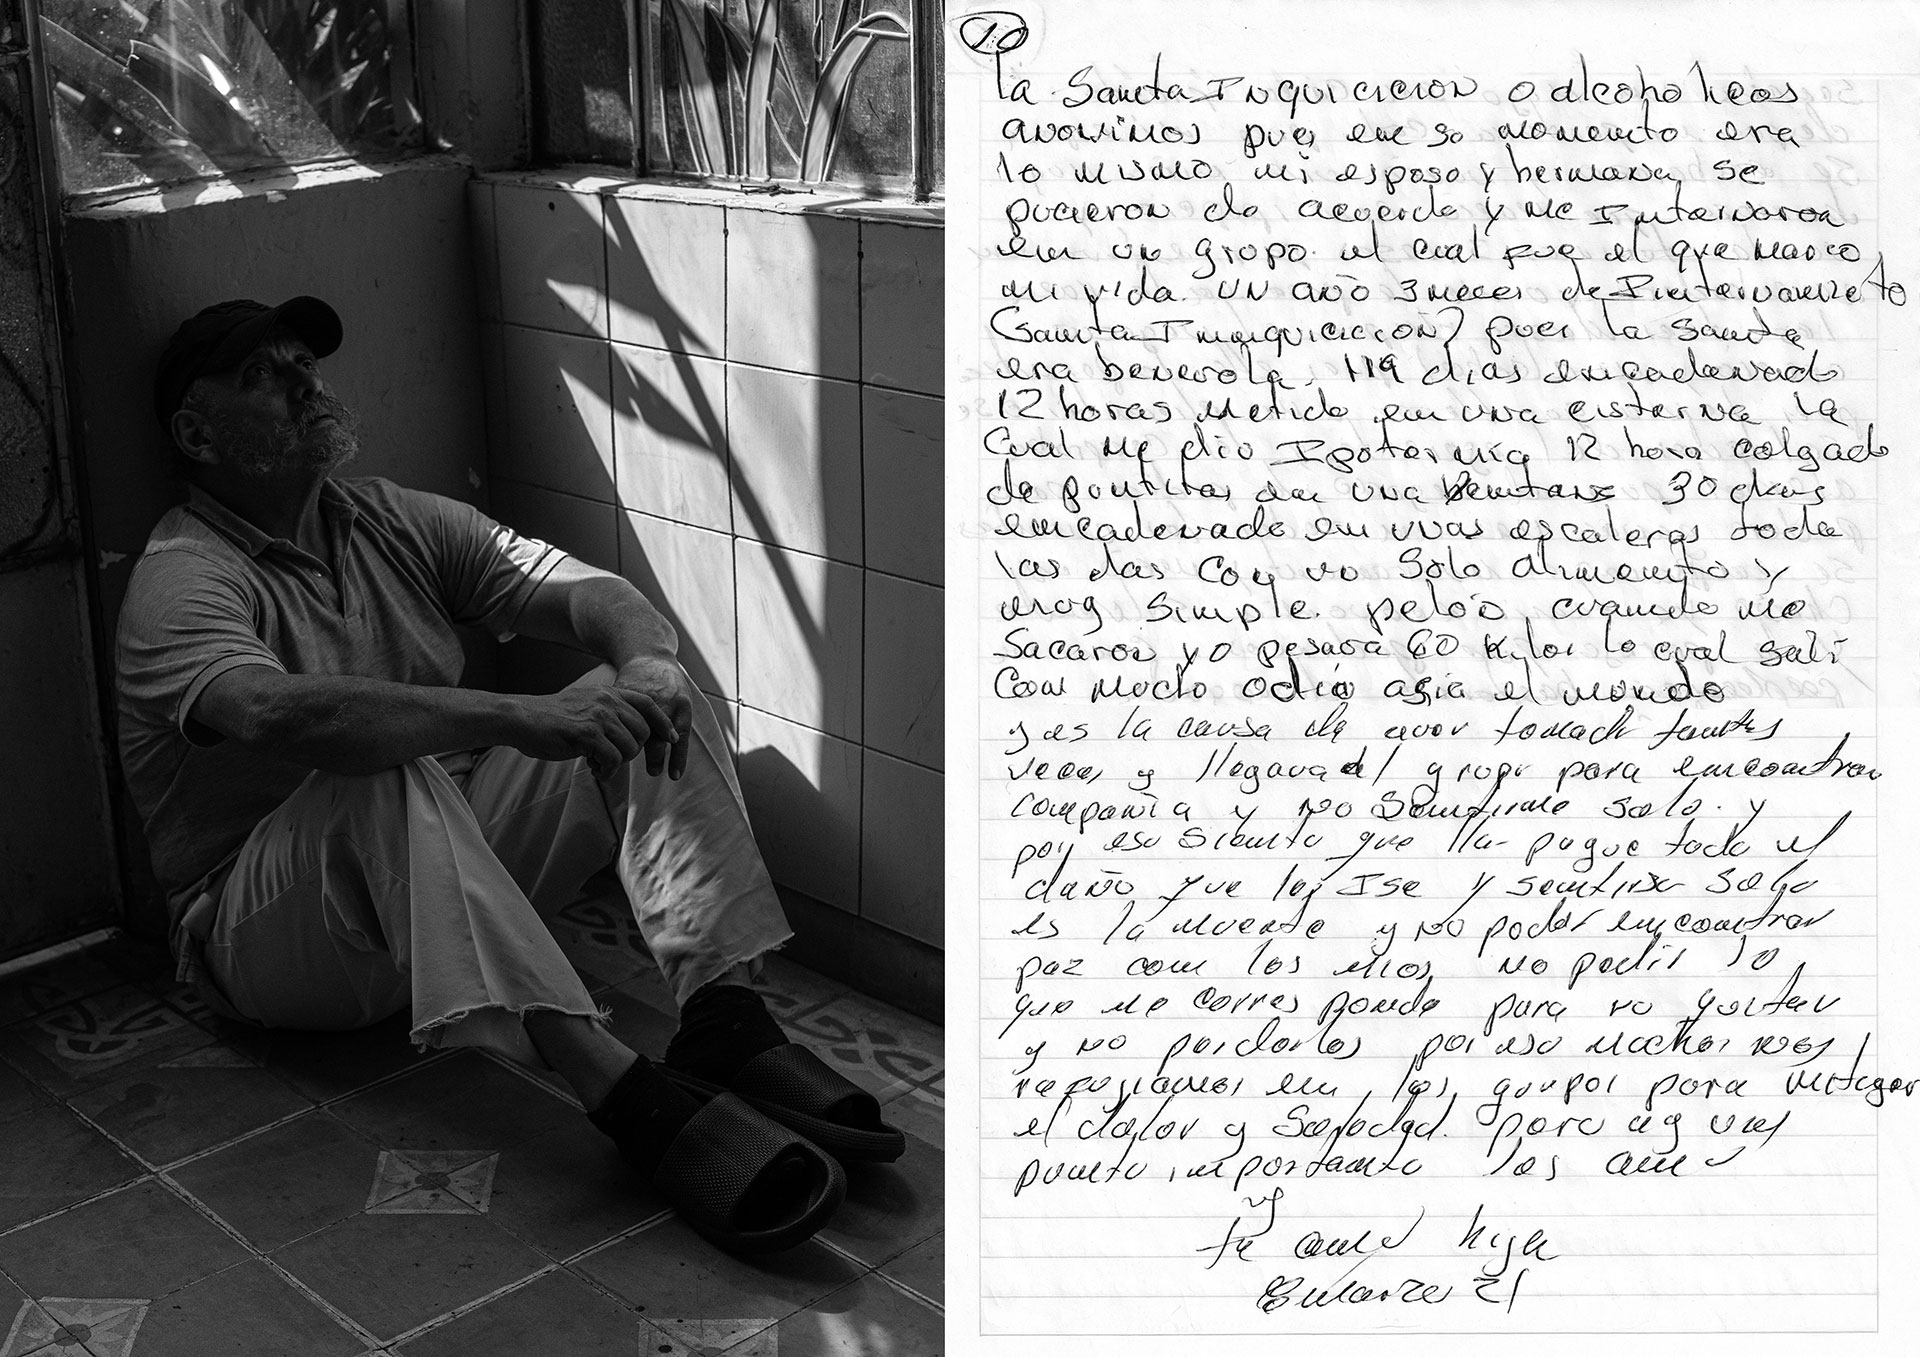 10
la Santa Inquicicion o alcoholicos
anonimos pues en so momento era
lo mismo mi esposo y hermana se
pucieron de acuerdo y me Internaron
en un grupo el cual fue el que marco
mi vida. UN año 3 meces de Internamiento
(Santa Innquicicion) pues la Santa
era benevola. 119 dias encadenado
12 horas metido en una cisterna la
Cual me dio Ipotermia 12 hora colgado
de puntitas en una Bentana 30 dias
encadenado en unas escaleras toda
las das Con uno Solo alimento y
muy simple. pelo o cuando me
Sacaron yo pesava 60 Kilos lo cual sali
Con mucho odio asia el mundo
y es la causa de aver tomado tantas
veces y llegava al grupo para encontrar
compañia y no sentirme solo. y
por eso siento que lla pague todo el
daño que les Ise y sentirse solo
es la muerte y no poder encontrar
paz con los mios, no pedir lo
que me corres ponde para no gritar
y no perderlos por eso muchos nos
refugiamos en los grupos para mitigar
el dolor y Soledad. pero ay un
punto importante los amo
y
te amo hija
21